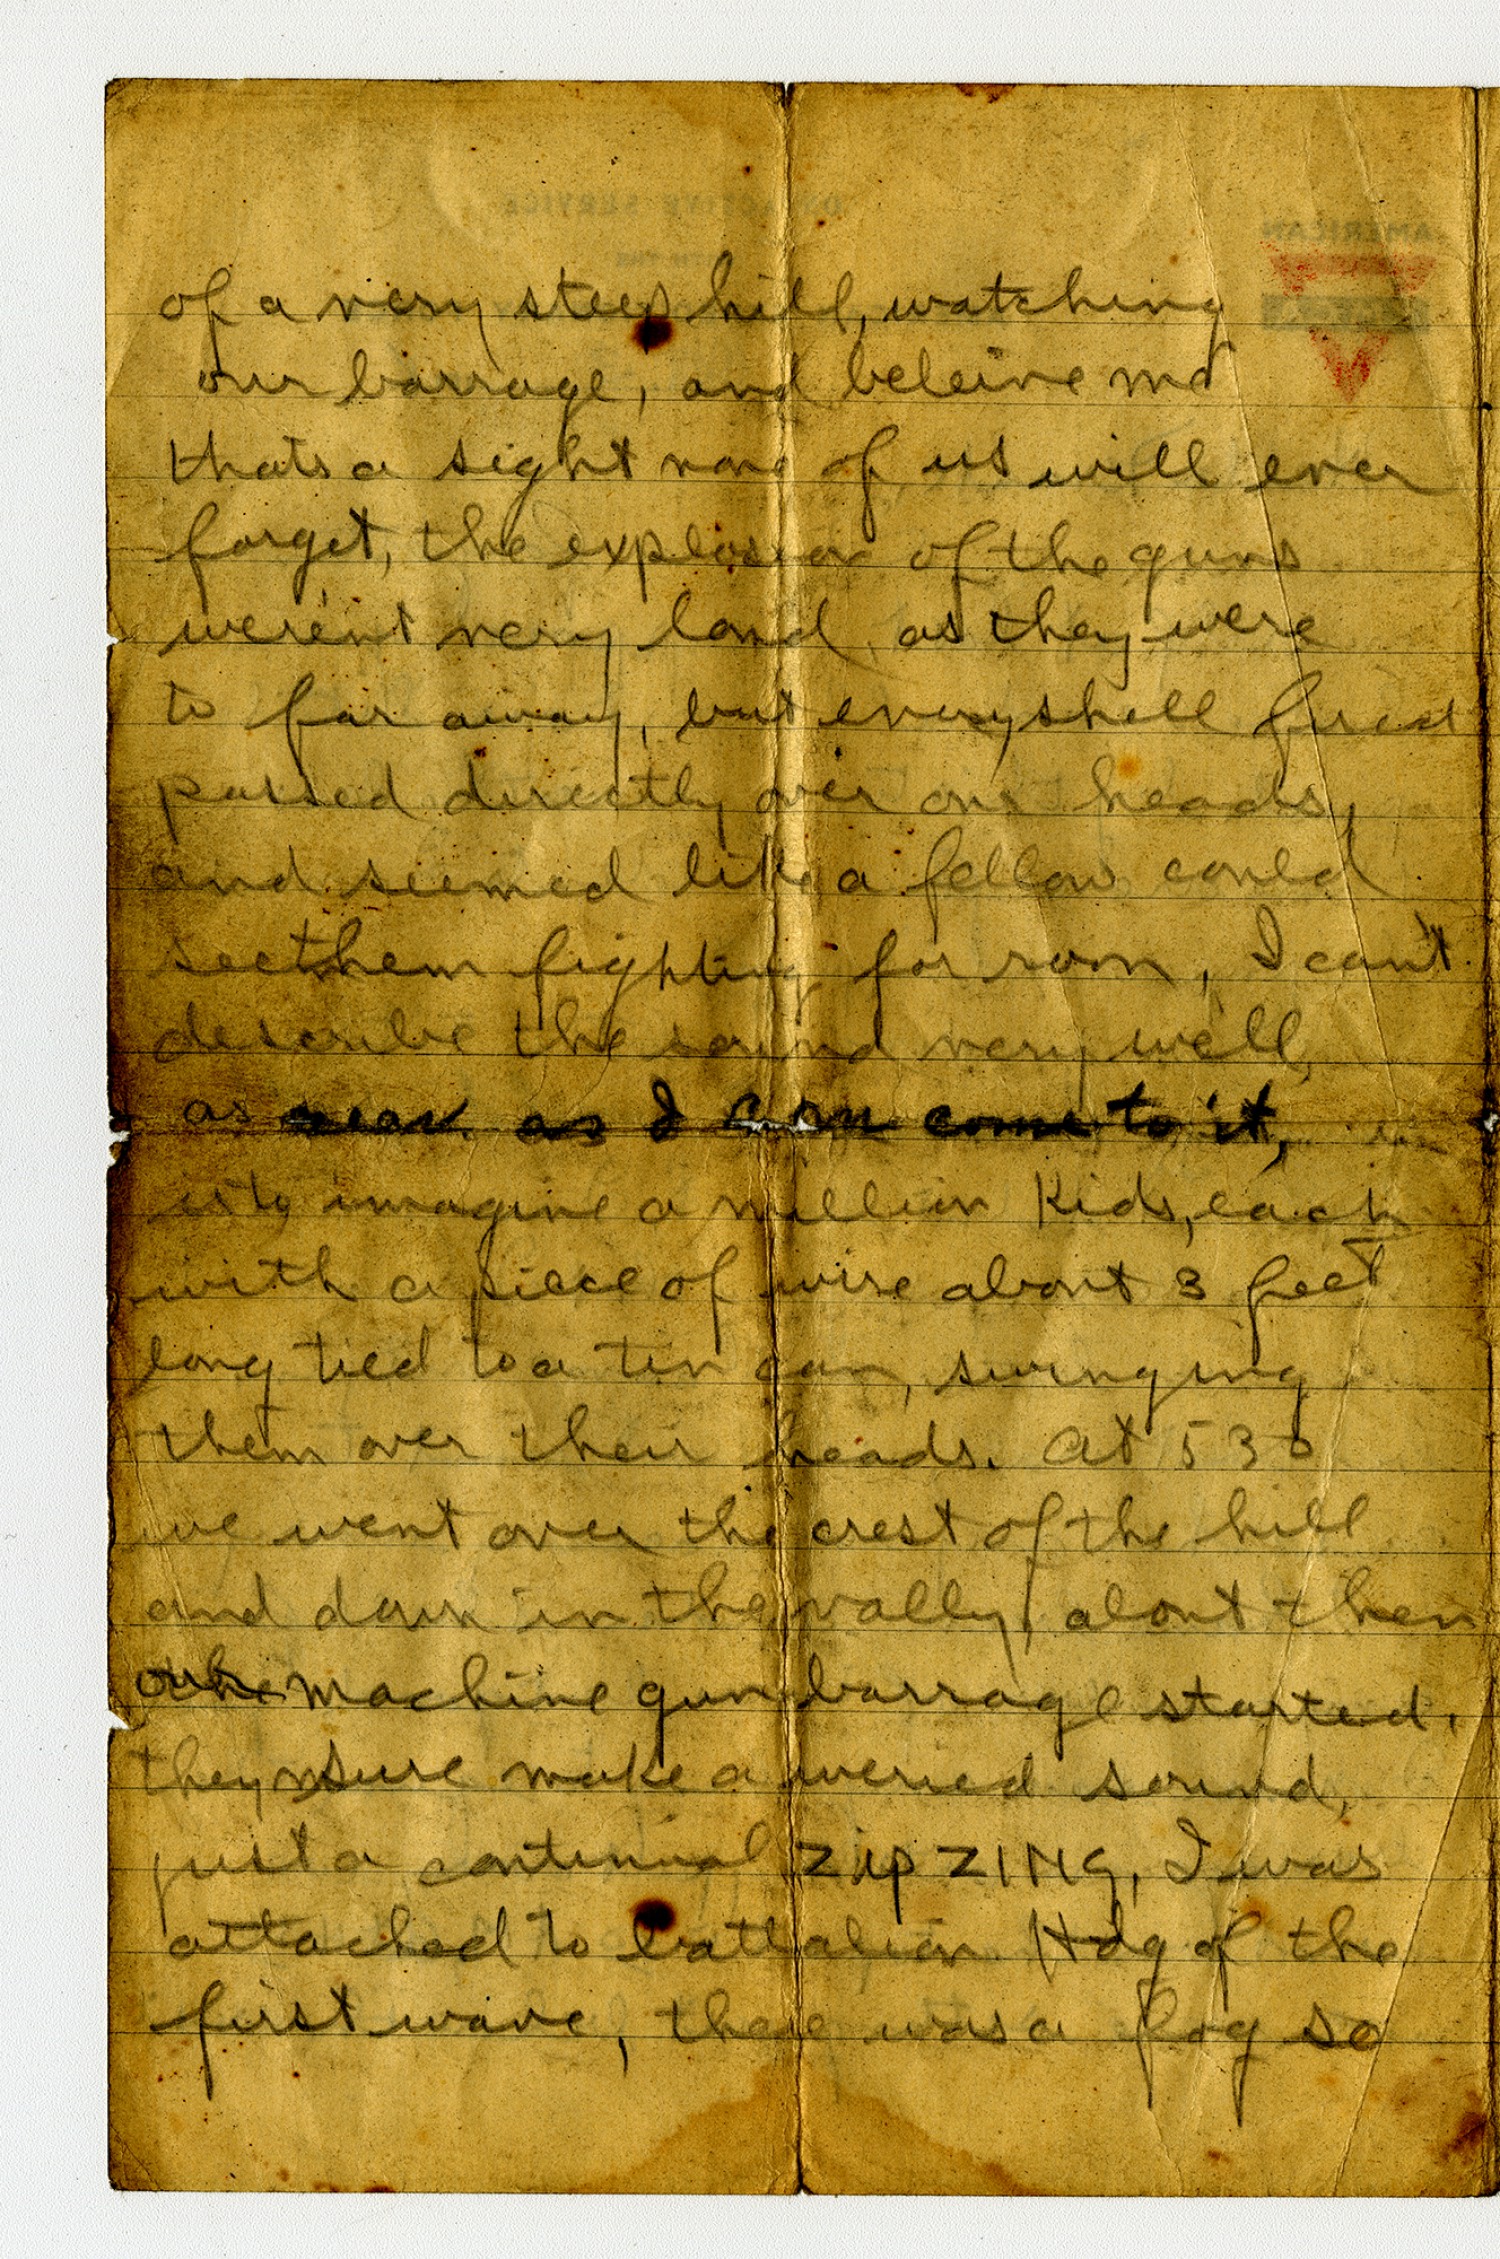 of a very steep hill, watching
our barrage, and beleive me
thats a sight none of us will ever
forget, the explosion of the guns
werent very loud, as they were
to far away, but every shell fired
passed directly over our heads,
and seemed like a fellow could
see them fighting for room, I can't
describe the sound very well,
as near as I can come to it,
is to imagine a million Kids, each
with a piece of wire about 3 feet
long tied to a tin can, swinging
them over their heads. At 530
we went over the crest of the hill
and down in the vally, about then
our machine gun barrage started,
they sure make a weried sound,
just a continual ZIP ZING, I was
attached to battalion Hdq of the
first wave, there was a fog so
ON ACTIVE SERVICE
WITH THE
AMERICAN